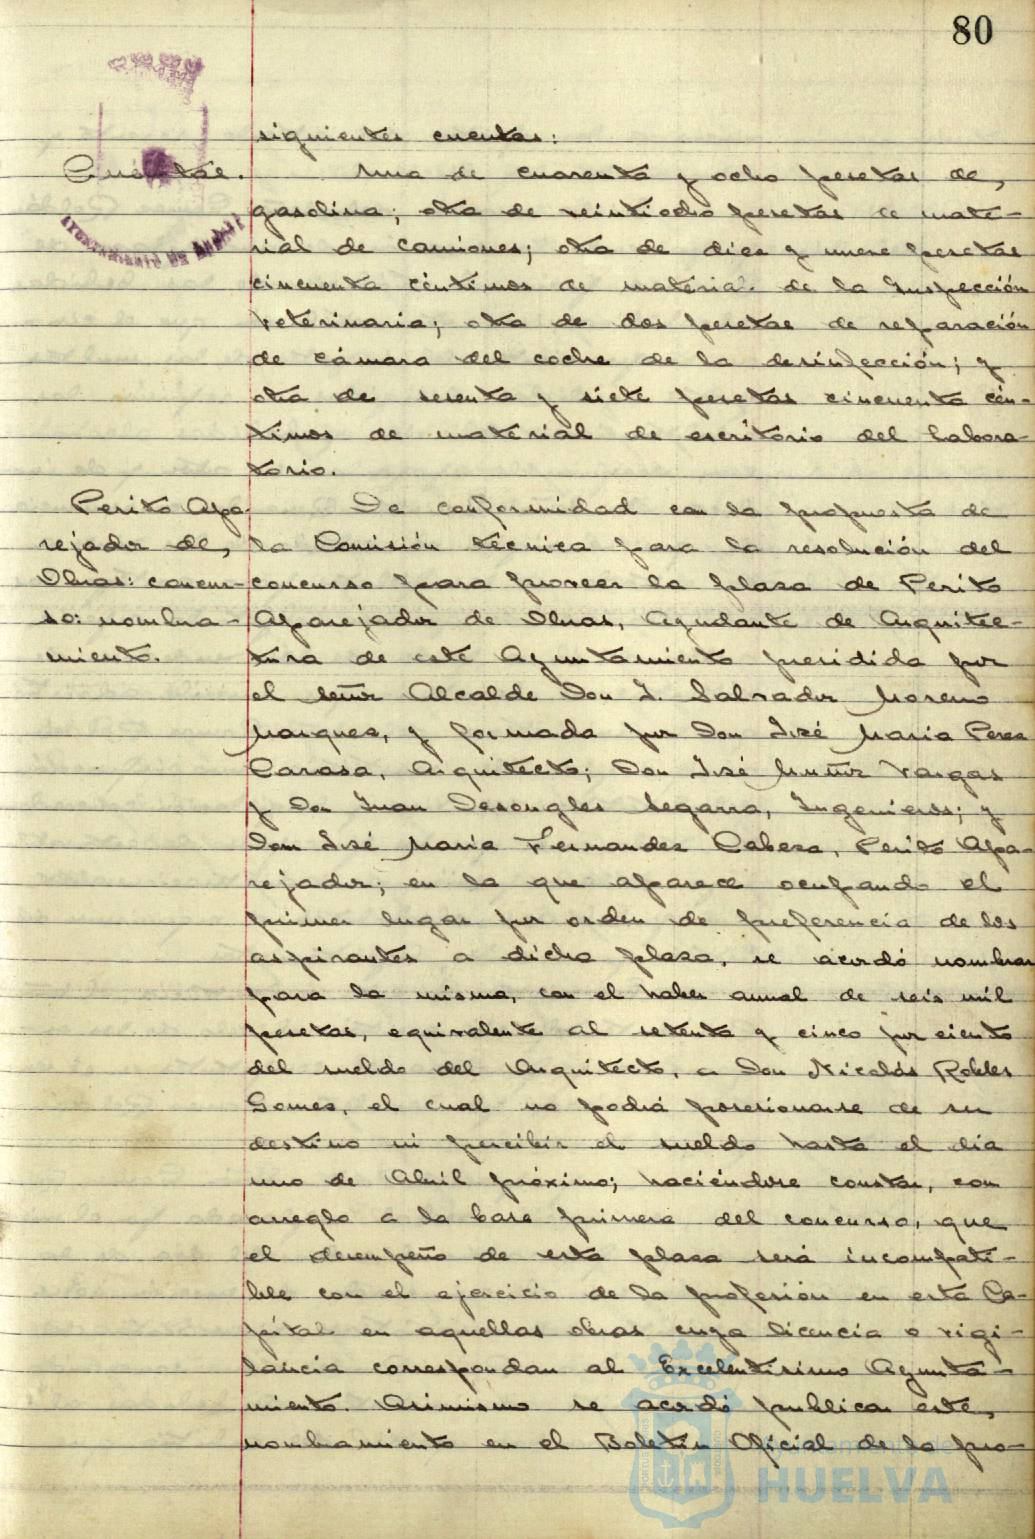 80
siguientes cuentas:
Cuentas.
Una de cuarenta y ocho pesetas de
gasolina; otra de veintiocho pesetas de mate-
rial de camiones; otra de diez y nueve pesetas
cincuenta céntimos de material de la Inspección
Veterinaria; otra de dos pesetas de reparación
de cámara del coche de la desinfección; y
otra de sesenta y siete pesetas cincuenta cén-
timos de material de escritorio del Labora-
torio.
Perito Apa-
rejador de
Obras: concur-
so: nombra-
miento.
De conformidad con la propuesta de
la Comisión técnica para la resolución del
concurso para proveer la plaza de Perito
Aparejador de Obras, Ayudante de Arquitec-
tura de este Ayuntamiento presidida por
el señor Alcalde Don J. Salvador Moreno
Marquez, y formada por Don José María Perez
Carasa, Arquitecto; Don José Muñoz Vargas
y Don Juan Desongles Segarra, Ingenieros; y
Don José María Fernandez Cabeza, Perito Apa-
rejador; en la que aparece ocupando el
primer lugar por orden de preferencia de los
aspirantes a dicha plaza, se acordó nombrar
para la misma, con el haber anual de seis mil
pesetas, equivalente al setenta y cinco por ciento
del sueldo del Arquitecto, a Don Nicolás Robles
Gomez, el cual no podrá posesionarse de su
destino ni percibir el sueldo hasta el día
uno de Abril próximo; haciéndose constar, con
arreglo a la base primera del concurso, que
el desempeño de esta plaza será incompati-
ble con el ejercicio de la profesión en esta Ca-
pital en aquellas obras cuya licencia o vigi-
lancia correspondan al Excelentísimo Ayunta-
miento. Asimismo se acordó publicar este
nombramiento en el Boletín Oficial de la pro-
HUELVA